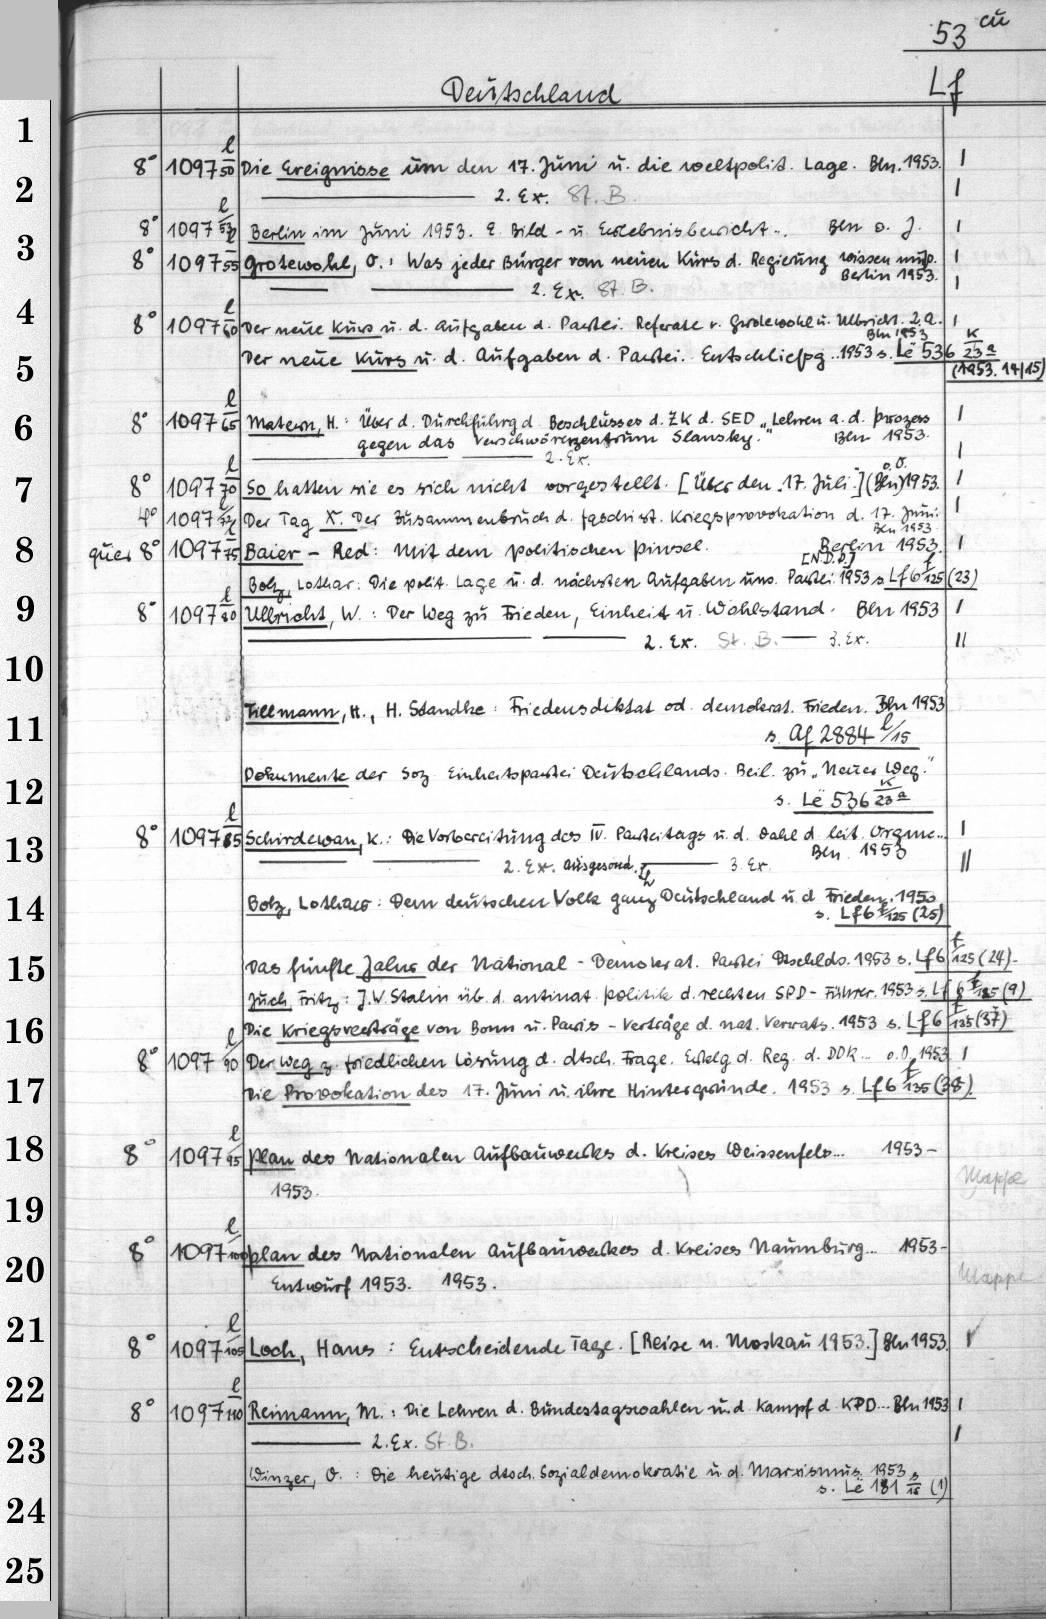 53 cu
Deutschland Lf
1
8° 1097 l/50 Die Ereignisse um den 17. Juni u. die weltpolit. Lage. Bln. 1953. I
2 2. Ex. St. B. I
8° 1097 l/53 Berlin im Juni 1953. E. Bild- u Erlebnisbericht.. Bln o. J. I
3
8° 1097 l/55 Grotewohl, O.: Was jeder Bürger vom neuen Kurs d. Regierung wissen muß. I
Berlin 1953.
2. Ex. St. B. I
4
8° 1097 l/60 Der neue Kurs u. d. Aufgaben d. Partei. Referate v. Grotewohl u. Ulbricht. 2. A. I
Bln 1953
5 Der neue Kurs u. d. Aufgaben d. Partei. Entschließg.. 1953 s. Lë 536 K/23 a
(1953. 14/15)
6 8° 1097 l/65 Matern, H.: Über d. Durchführg d Beschlusses d. ZK d. SED „Lehren a. d. Prozess I
gegen das Verschwörerzentrum Slansky." Bln 1953.
2. Ex. I
7 8° 1097 l/70 So hatten sie es sich nicht vorgestellt. [Über den 17. Juli.] o. O. (Bln) 1953. I
4° 1097 Der Tag X. Der Zusammenbruch d. faschist. Kriegsprovokation d. 17. Juni. I
Bln 1953
8 quer 8° 1097 l/75 Baier - Red: Mit dem politischen Pinsel. Berlin 1953. I
[N.D.P.]
Bolz, Lothar: Die polit. Lage u. d. nächsten Aufgaben uns. Partei. 1953 s. Lf 6 f/125 (23)
9 8° 1097 l/80 Ulbricht, W.: Der Weg zu Frieden, Einheit u. Wohlstand. Bln 1953 I
2. Ex. St. B. 3. Ex. II
10
Tillmann, H., H. Standke: Friedensdiktat od. demokrat. Frieden. Bln 1953
11 s. Af 2884 l/15
Dokumente der Soz. Einheitspartei Deutschlands. Beil. zu „Neuer Weg."
12 s. Lë 536 K/23 a
13 8° 1097 l/85 Schirdewan, K.: Die Vorbereitung des IV. Parteitags u. d. Wahl d leit. Organe.. I
Bln 1953
2. Ex. ausgesond. 3. Ex. II
14 Bolz, Lothar: Dem deutschen Volk ganz Deutschland u. d Frieden. 1950
s. Lf 6 f/125 (25)
15 Das fünfte Jahr der National-Demokrat. Partei Dtschlds. 1953 s. Lf 6 f/125 (24).
Juch, Fritz: J.W. Stalin üb. d. antinat. Politik d. rechten SPD-Führer. 1953 s. Lf 6 f/135 (9)
16 Die Kriegsverträge von Bonn u. Paris - Verträge d. nat. Verrats. 1953 s. Lf 6 f/135 (37)
8° 1097 l/90 Der Weg z. friedlichen Lösung d. dtsch. Frage. Erklg d. Reg. d. DDR... o.O. 1953. I
17 Die Provokation des 17. Juni u. ihre Hintergründe. 1953 s. Lf 6 f/135 (38).
18 8° 1097 l/95 Plan des Nationalen Aufbauwerkes d. Kreises Weissenfels... 1953-
1953. Mappe
19
8° 1097 l/100 Plan des Nationalen Aufbauwerkes d. Kreises Naumburg... 1953-
20 Entwurf 1953. 1953. Mappe
21
8° 1097 l/105 Loch, Hans: Entscheidende Tage. [Reise n. Moskau 1953.] Bln 1953. I
22
8° 1097 l/110 Reimann, M.: Die Lehren d. Bundestagswahlen u. d. Kampf d. KPD... Bln 1953 I
23 2. Ex. St. B. I
Winzer, O.: Die heutige dtsch. Sozialdemokratie u. d. Marxismus 1953
s. Lë 181 s/15 (1)
24
25